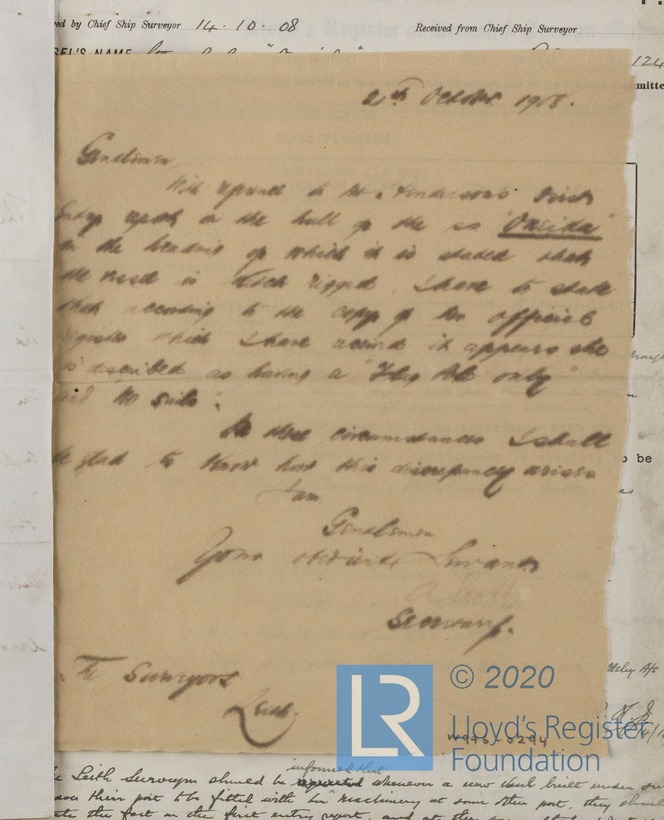 ed by Chief Ship Surveyor 14.10.08 Received from Chief Ship Surveyor
SEL'S NAME
124
mitte
2nd October 1908.
Gentlemen
With regard to Mr. Anderson's First
Entry report on the hull of the ss "Oneida"
in the heading of which it is stated that
the vessel is Ketch rigged, I have to state
that according to the copy of her official
register which I have received it appears she
is described as having a "Flag Pole only"
and no sails.
In these circumstances I shall
be glad to know how this discrepancy arises
I am
Gentlemen
Your obedient Servant
A Scott
Secretary.
The Surveyors
Leith.
o be
© 2020
LR
Lloyd's Register
Foundation
W996-0294
Leith Surveyors should be informed that whenever a new vessel built under su
their port to be fitted with her machinery at some other port, they should
the fact on the first entry report, and at the